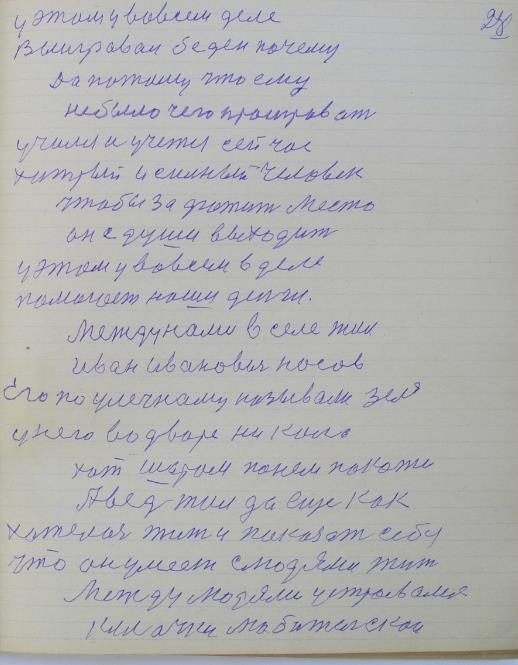 280
уэтому вовсем деле
Выигровал беден почему
Да потому что ему
небыло чего проигроват
учился и учется сейчас
хитрый и силный человек
чтобы за
место
он с души выходит
уэтому вовсем в деле
помогает наши денги.
Междунами в селе жил
Иван Иванович носов
Его по улечному называли зеля
унего водворе ни кола
хот шаром понем покати
Авед жил да еще как
хателос жит и покозат себу
что он умеет слюдями жит
Между людями устроволся